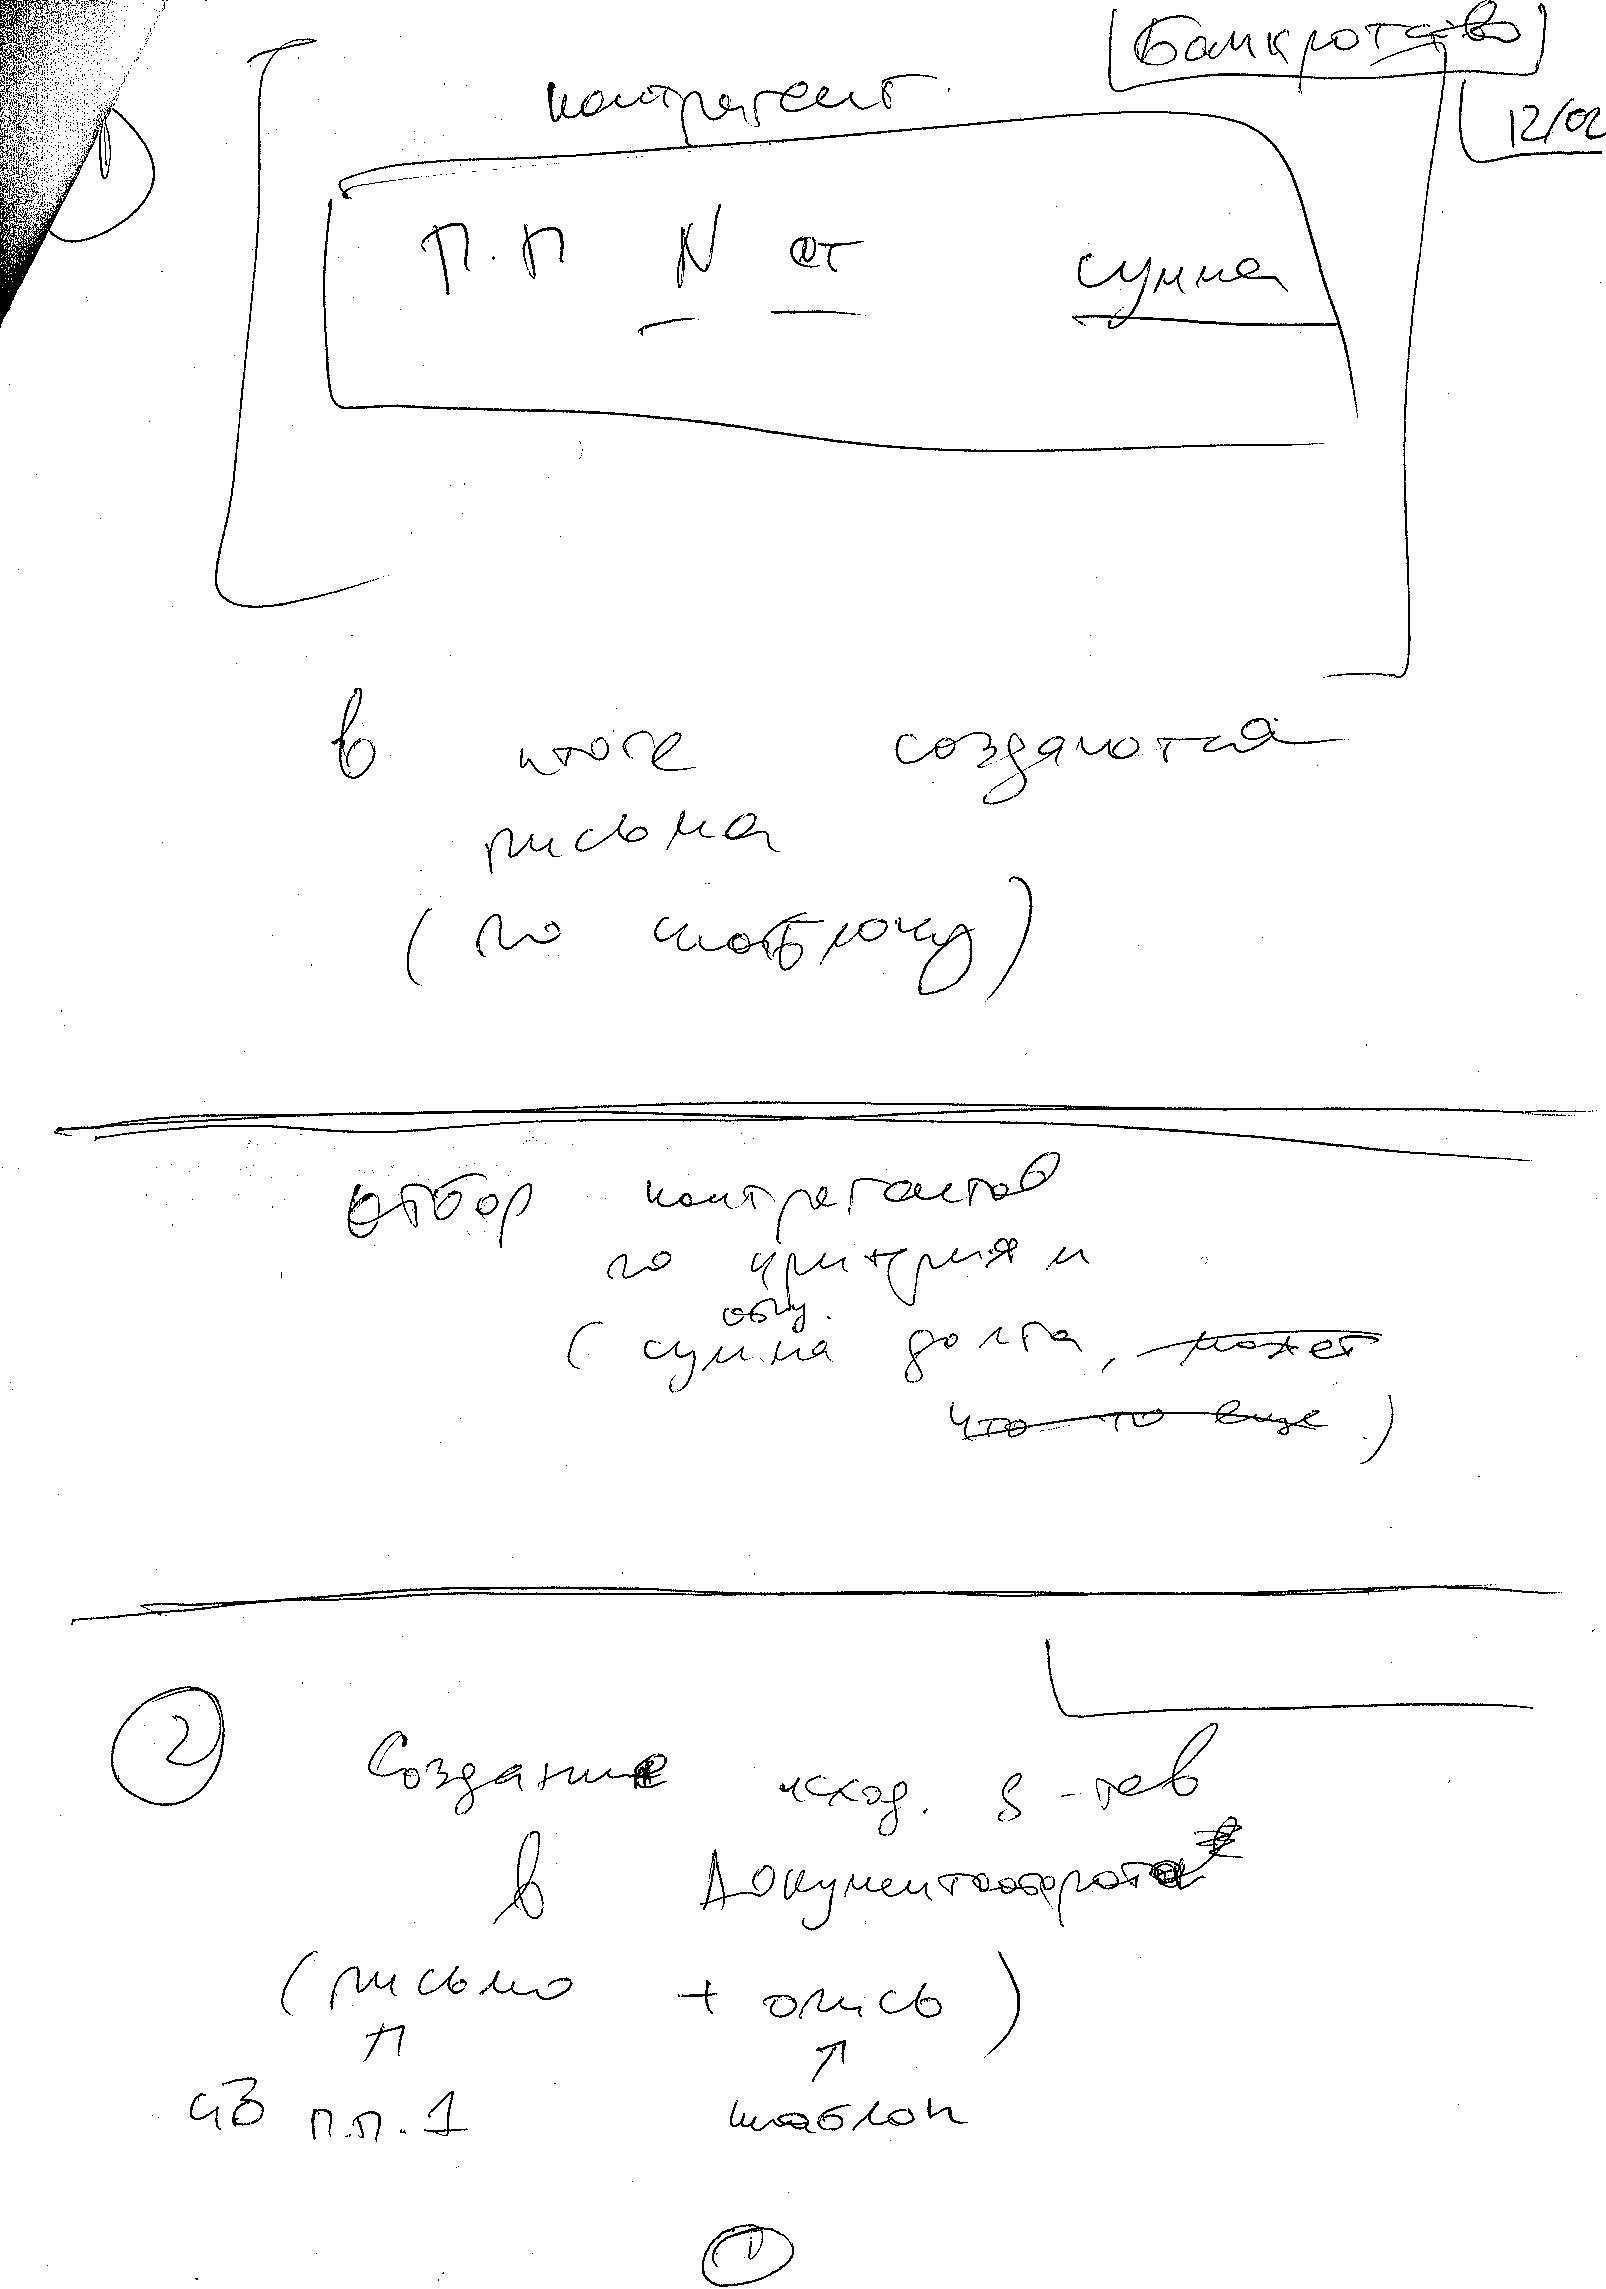 Банкротство
12/02
контрагент
П.П N от сумма
в итоге создаются
письма
(по шаблону)
Отбор контрагентов
по критериям
общ.
(сумма долга, может
что то еще)
2 Создание исход. д-тов
в Документообороте
(письмо + опись)
из п.п. 1 шаблон
1